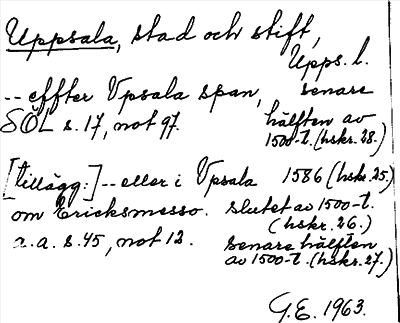 Uppsala, stad och stift,
Upps. l.
-- effter Vpsala span, senare
SÖL s. 17, not 97. hälften av
1500-t. (hskr. 28.)
[tillägg:] -- eller i Vpsala 1586 (hskr. 25.)
om Ericksmesso. slutet av 1500-t.
(hskr. 26.)
a. a. s. 45, not 12. senare hälften
av 1500-t. (hskr. 27.)
G. E. 1963.